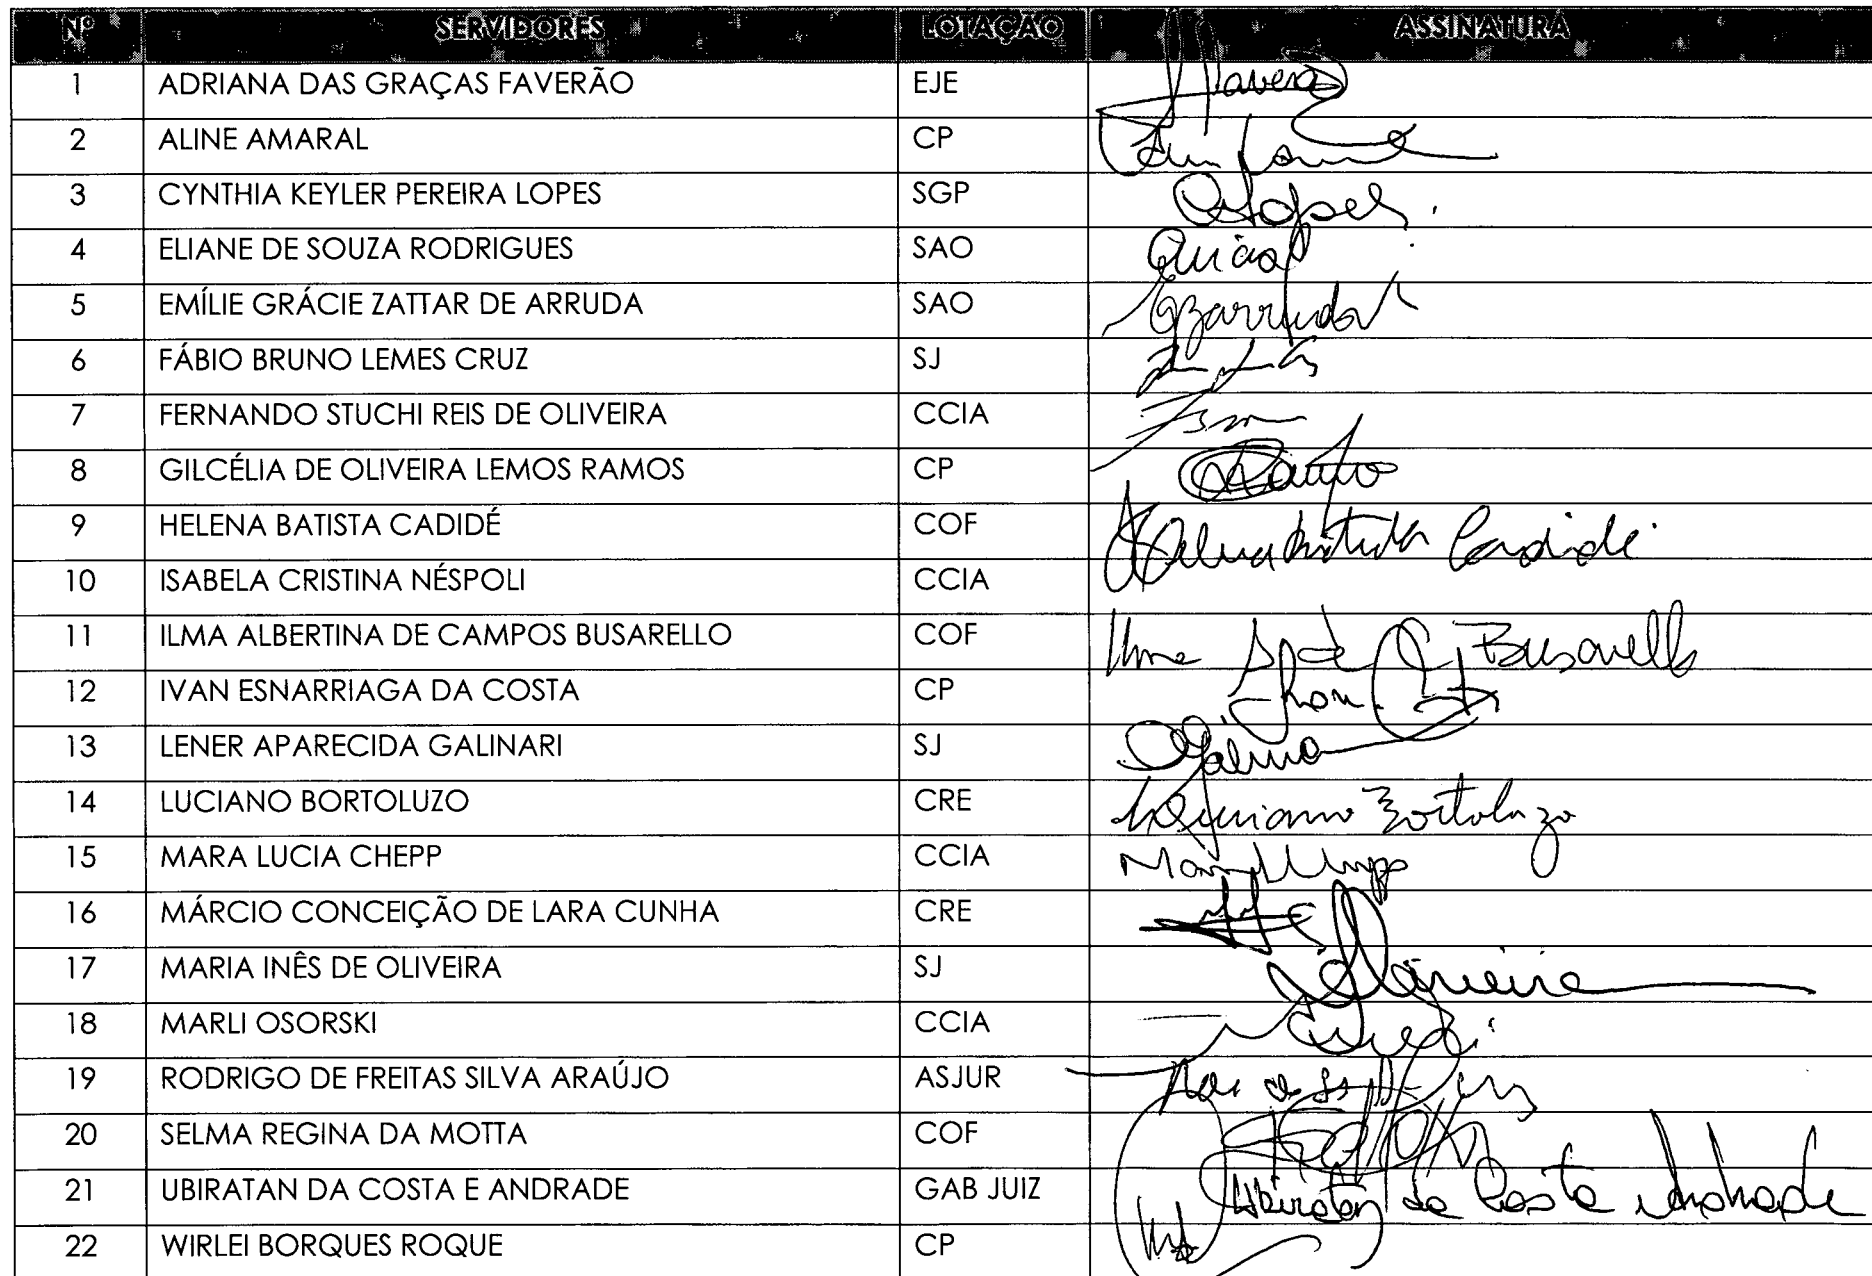 Nº SERVIDORES LOTAÇÃO ASSINATURA
1 ADRIANA DAS GRAÇAS FAVERÃO EJE
2 ALINE AMARAL CP
3 CYNTHIA KEYLER PEREIRA LOPES SGP
4 ELIANE DE SOUZA RODRIGUES SAO
5 EMÍLIE GRÁCIE ZATTAR DE ARRUDA SAO
6 FÁBIO BRUNO LEMES CRUZ SJ
7 FERNANDO STUCHI REIS DE OLIVEIRA CCIA
8 GILCÉLIA DE OLIVEIRA LEMOS RAMOS CP
9 HELENA BATISTA CADIDÉ COF
10 ISABELA CRISTINA NÉSPOLI CCIA
11 ILMA ALBERTINA DE CAMPOS BUSARELLO COF Busarello
12 IVAN ESNARRIAGA DA COSTA CP
13 LENER APARECIDA GALINARI SJ
14 LUCIANO BORTOLUZO CRE Luciano Bortoluzo
15 MARA LUCIA CHEPP CCIA
16 MÁRCIO CONCEIÇÃO DE LARA CUNHA CRE
17 MARIA INÊS DE OLIVEIRA SJ
18 MARLI OSORSKI CCIA
19 RODRIGO DE FREITAS SILVA ARAÚJO ASJUR
20 SELMA REGINA DA MOTTA COF
21 UBIRATAN DA COSTA E ANDRADE GAB JUIZ Ubiratan da Costa e Andrade
22 WIRLEI BORQUES ROQUE CP